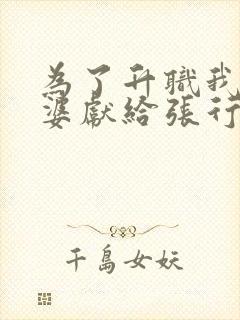 為了升職我
婆獻給張行
千島女妖